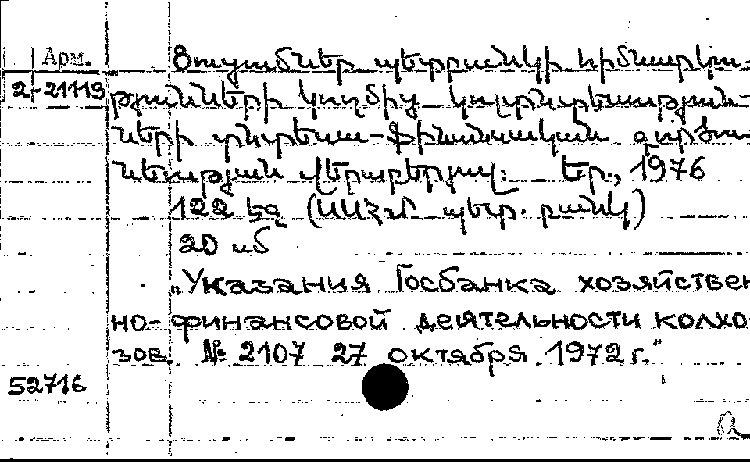 Арм.
2-21113
Ցուցումներ պետբանկի հիմնարկու-
թյունների կողմից կոլտնտեսություն-
ների տնտեսա-ֆինանսական գործու-
նեության վերաբերյալ: Եր., 1976
122 էջ (ՍՍՀՄ պետ. բանկ)
20 սմ
„Указания Госбанка хозяйствен
но-финансовой деятельности колхо
зов. № 2107 27 октября 1972 г.“
52716